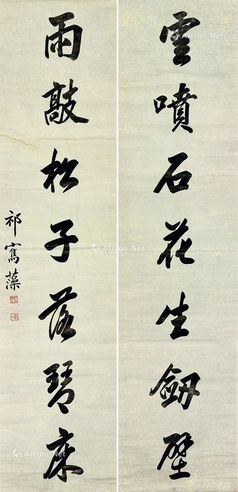 雲噴石花生劔壁
雨敲松子落琴床
祁寯藻